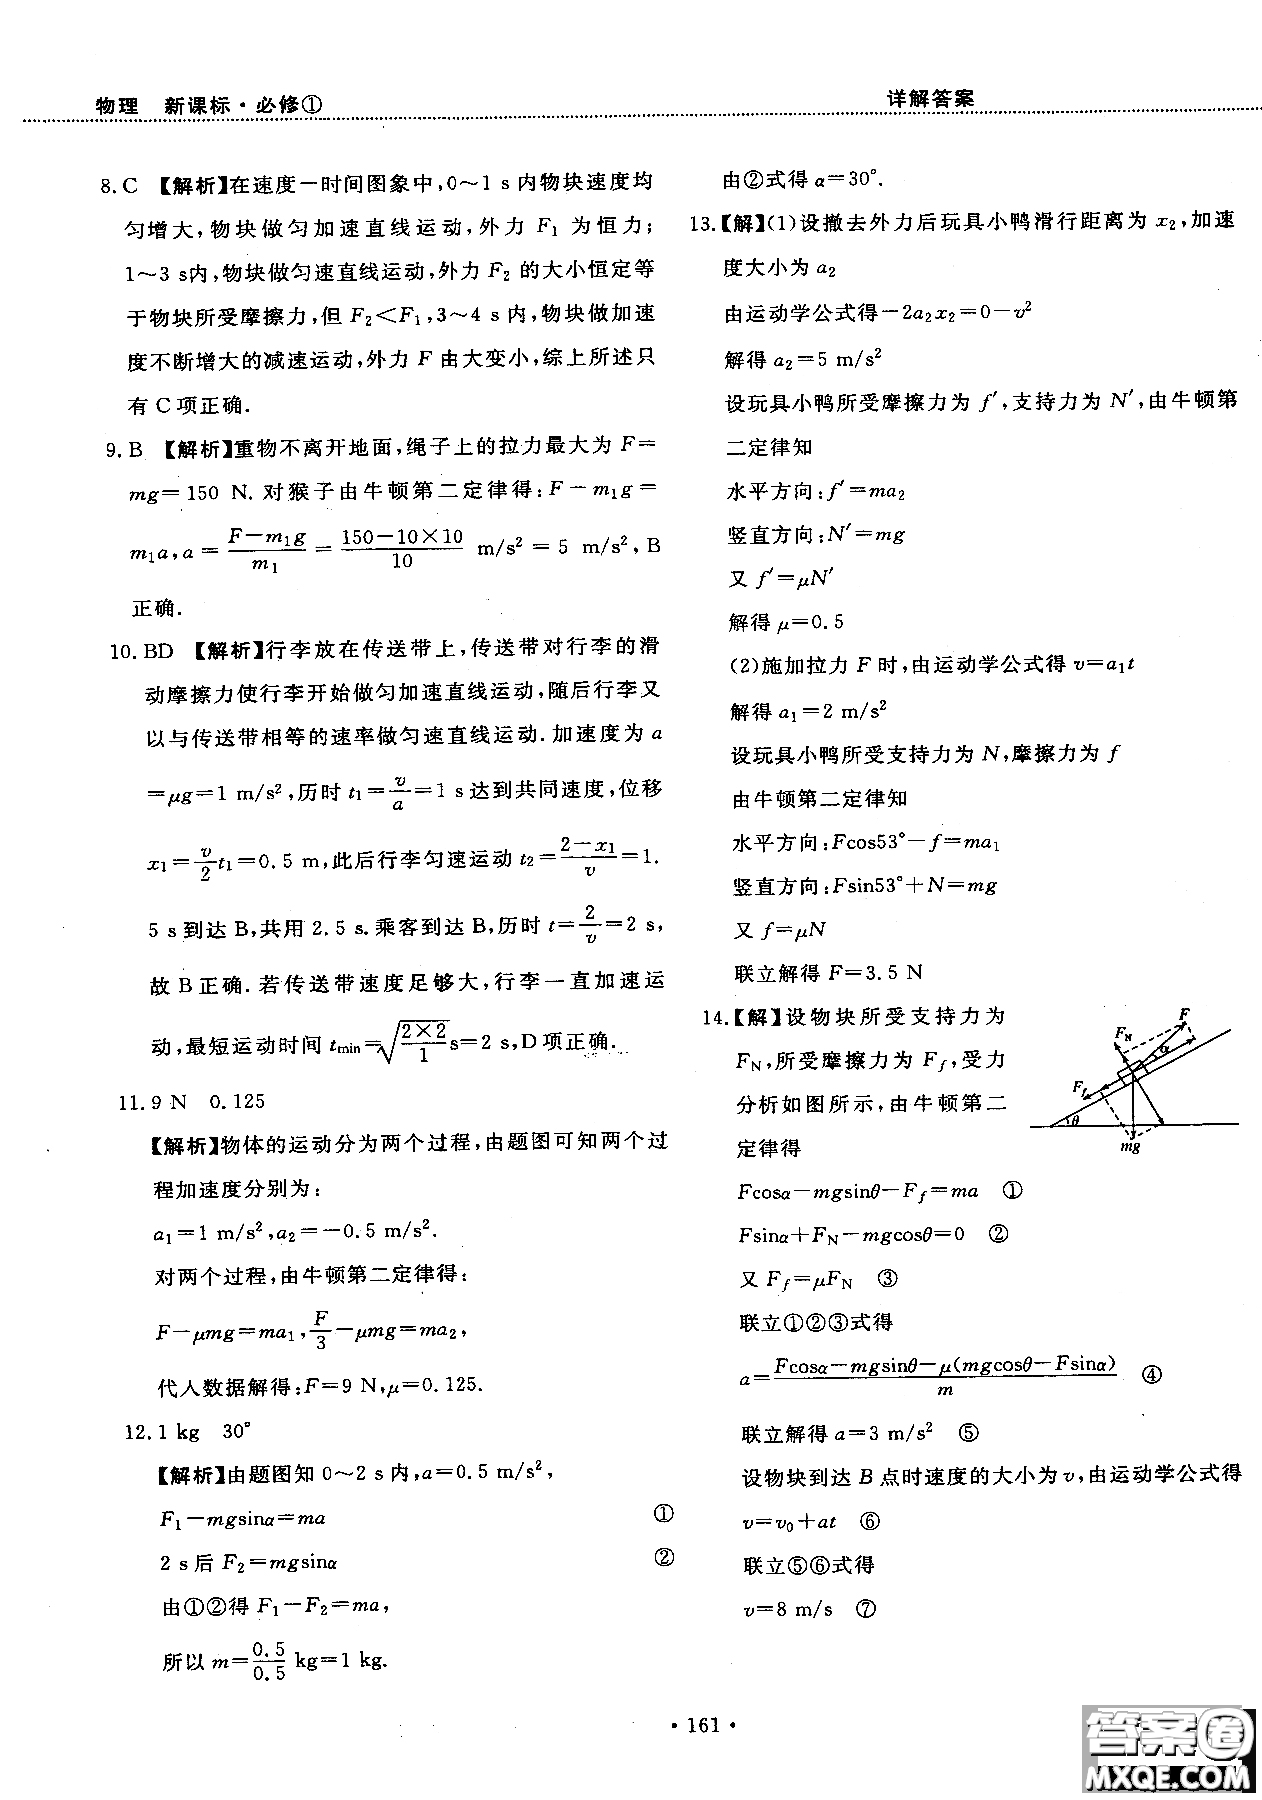 物理 新课标·必修①
详解答案
8.C 【解析】在速度—时间图象中,0～1 s内物块速度均
匀增大,物块做匀加速直线运动,外力 F₁ 为恒力;
1～3 s内,物块做匀速直线运动,外力 F₂ 的大小恒定等
于物块所受摩擦力,但 F₂<F₁,3～4 s 内,物块做加速
度不断增大的减速运动,外力 F 由大变小,综上所述只
有 C 项正确.
9.B 【解析】重物不离开地面,绳子上的拉力最大为 F=
mg=150 N. 对猴子由牛顿第二定律得:F-m₁g=
m₁a,a=(F-m₁g)/m₁=(150-10×10)/10 m/s²=5 m/s²,B
正确.
10.BD 【解析】行李放在传送带上,传送带对行李的滑
动摩擦力使行李开始做匀加速直线运动,随后行李又
以与传送带相等的速率做匀速直线运动.加速度为 a
=μg=1 m/s²,历时 t₁=v/a=1 s达到共同速度,位移
x₁=v/2 t₁=0.5 m,此后行李匀速运动 t₂=(2-x₁)/v=1.
5 s到达 B,共用 2.5 s.乘客到达 B,历时 t=2/v=2 s,
故 B 正确.若传送带速度足够大,行李一直加速运
动,最短运动时间 tmin=√(2×2/1) s=2 s,D 项正确.
11.9 N 0.125
【解析】物体的运动分为两个过程,由题图可知两个过
程加速度分别为:
a₁=1 m/s²,a₂=-0.5 m/s².
对两个过程,由牛顿第二定律得:
F-μmg=ma₁,F/3-μmg=ma₂,
代人数据解得:F=9 N,μ=0.125.
12.1 kg 30°
【解析】由题图知 0～2 s 内,a=0.5 m/s²,
F₁-mgsinα=ma ①
2 s 后 F₂=mgsinα ②
由①②得 F₁-F₂=ma,
所以 m=0.5/0.5 kg=1 kg.
由②式得 α=30°.
13.【解】(1)设撤去外力后玩具小鸭滑行距离为 x₂,加速
度大小为 a₂
由运动学公式得-2a₂x₂=0-v²
解得 a₂=5 m/s²
设玩具小鸭所受摩擦力为 f′,支持力为 N′,由牛顿第
二定律知
水平方向:f′=ma₂
竖直方向:N′=mg
又 f′=μN′
解得 μ=0.5
(2)施加拉力 F 时,由运动学公式得 v=a₁t
解得 a₁=2 m/s²
设玩具小鸭所受支持力为 N,摩擦力为 f
由牛顿第二定律知
水平方向:Fcos53°-f=ma₁
竖直方向:Fsin53°+N=mg
又 f=μN
联立解得 F=3.5 N
14.【解】设物块所受支持力为
F_N,所受摩擦力为 F_f,受力
分析如图所示,由牛顿第二
定律得
F_N
F
α
F_f
θ
mg
Fcosα-mgsinθ-F_f=ma ①
Fsinα+F_N-mgcosθ=0 ②
又 F_f=μF_N ③
联立①②③式得
a=(Fcosα-mgsinθ-μ(mgcosθ-Fsinα))/m ④
联立解得 a=3 m/s² ⑤
设物块到达 B 点时速度的大小为 v,由运动学公式得
v=v₀+at ⑥
联立⑤⑥式得
v=8 m/s ⑦
·161·
答案圈
MXQE.COM